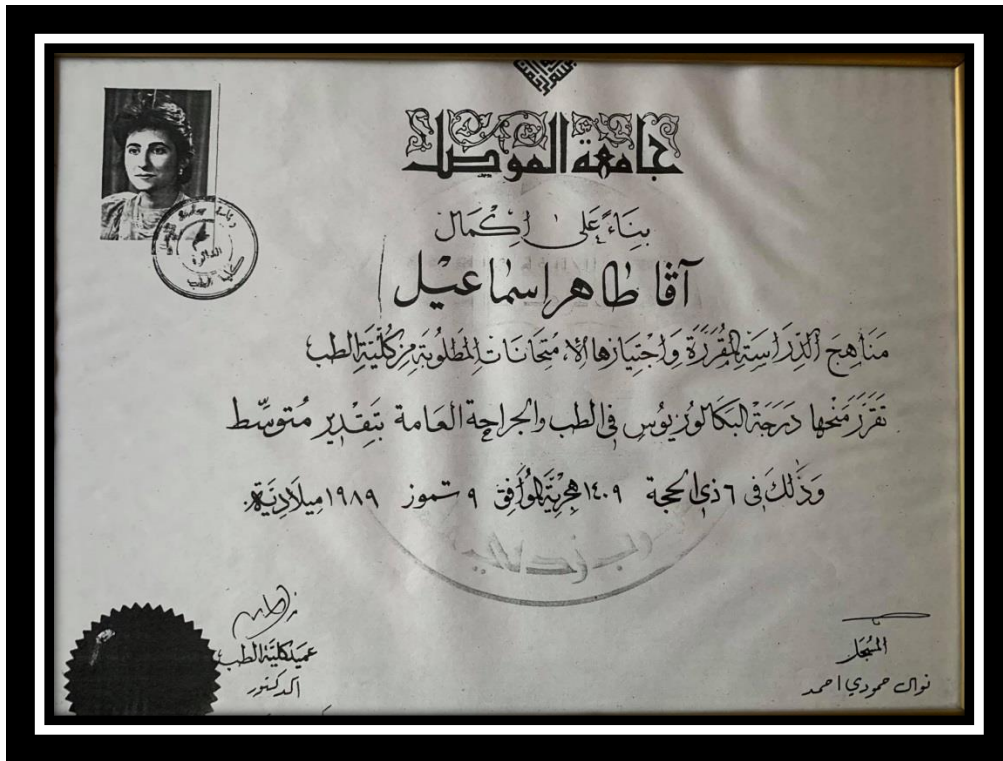 جامعة الموصل
بِنَاءً عَلى إكْمَال
آڤا طاهر إسماعيل
مَنَاهِجَ الدِّرَاسَةِ المُقَرَّرَة وَاجْتِيَازِهَا الامتِحَانَاتِ المَطلُوبَة مِن كُلِّيَّةِ الطب
تَقَرَّرَ مَنْحُهَا دَرَجَةَ البَكَالُورْيُوس في الطب والجراحة العامة بتَقدير مُتوسّط
وَذَٰلكَ في ٦ ذي الحجة ١٤٠٩ هِجْرِيَّة المُوَافِق ٩ تموز ١٩٨٩ مِيلَادِيَّة.
رب زدني علما
عَمِيد كُلِّيَّة الطب
الدكتور
المُسَجِّل
نوال حمودي احمد